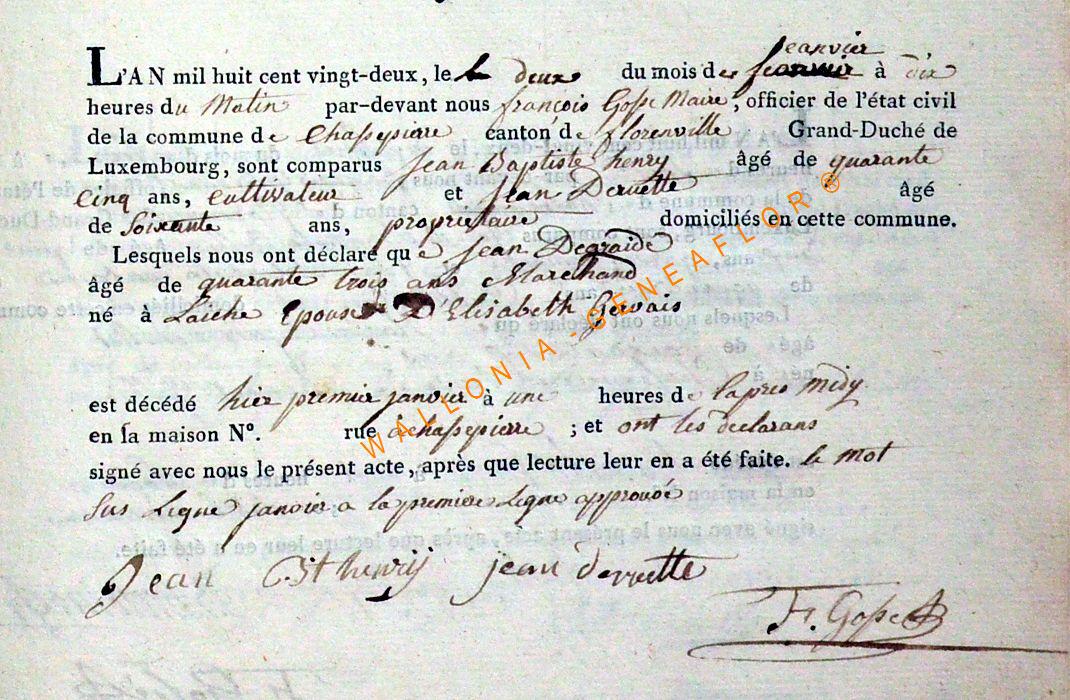 L'AN mil huit cent vingt-deux, le deux du mois de jeanvier à dix
heures du Matin par-devant nous françois Gosse Maire, officier de l'état civil
de la commune de Chassepierre canton de florenville Grand-Duché de
Luxembourg, sont comparus Jean Baptiste henry âgé de quarante
Cinq ans, Cultivateur et jean Deruette âgé
de Soixante ans, proprietaire domiciliés en cette commune.
Lesquels nous ont déclaré que jean Degraide
âgé de quarante trois ans Marechand
né à Laiche Epouse D'Elisabeth Gervais
est décédé hier premier janvier à une heures de lapres midy
en la maison N°. rue à chassepierre ; et ont les declarans
signé avec nous le présent acte, après que lecture leur en a été faite. le mot
sus Ligne janvier a la premiere Ligne approuvée
Jean Bt henrij jean derruette
F. Gosse
WALLONIA-GENEAFLOR ®